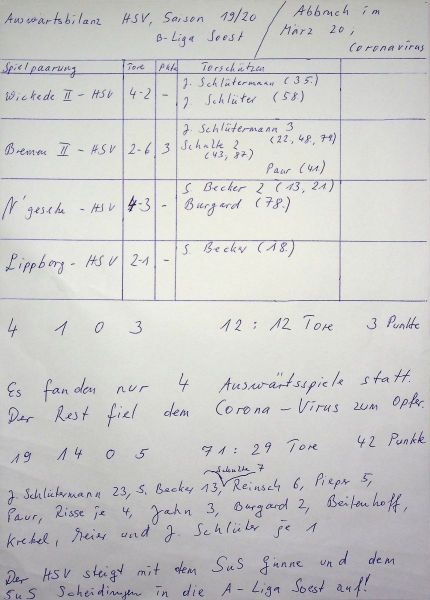 Auswärtsbilanz HSV, Saison 19/20 / Abbruch im
B-Liga Soest / März 20,
Coronavirus
Spielpaarung Tore Pkte Torschützen
Wickede II - HSV 4-2 - J. Schlütermann (35.)
J. Schlüter (58.)
Bremen II - HSV 2-6 3 J. Schlütermann 3
(22, 48, 79)
Schulte 2
(43, 87)
Paur (41.)
N'geseke - HSV 4-3 - S. Becker 2 (13, 21)
Burgard (78.)
Lippborg - HSV 2-1 - S. Becker (18.)
4 1 0 3 12 : 12 Tore 3 Punkte
Es fanden nur 4 Auswärtsspiele statt.
Der Rest fiel dem Corona-Virus zum Opfer.
19 14 0 5 71 : 29 Tore 42 Punkte
Schulte 7
J. Schlütermann 23, S. Becker 13, Reinsch 6, Pieper 5,
Paur, Risse je 4, Jahn 3, Burgard 2, Beitenhoff,
Krekel, Meier und J. Schlüter je 1
Der HSV steigt mit dem SuS Günne und dem
SuS Scheidingen in die A-Liga Soest auf!